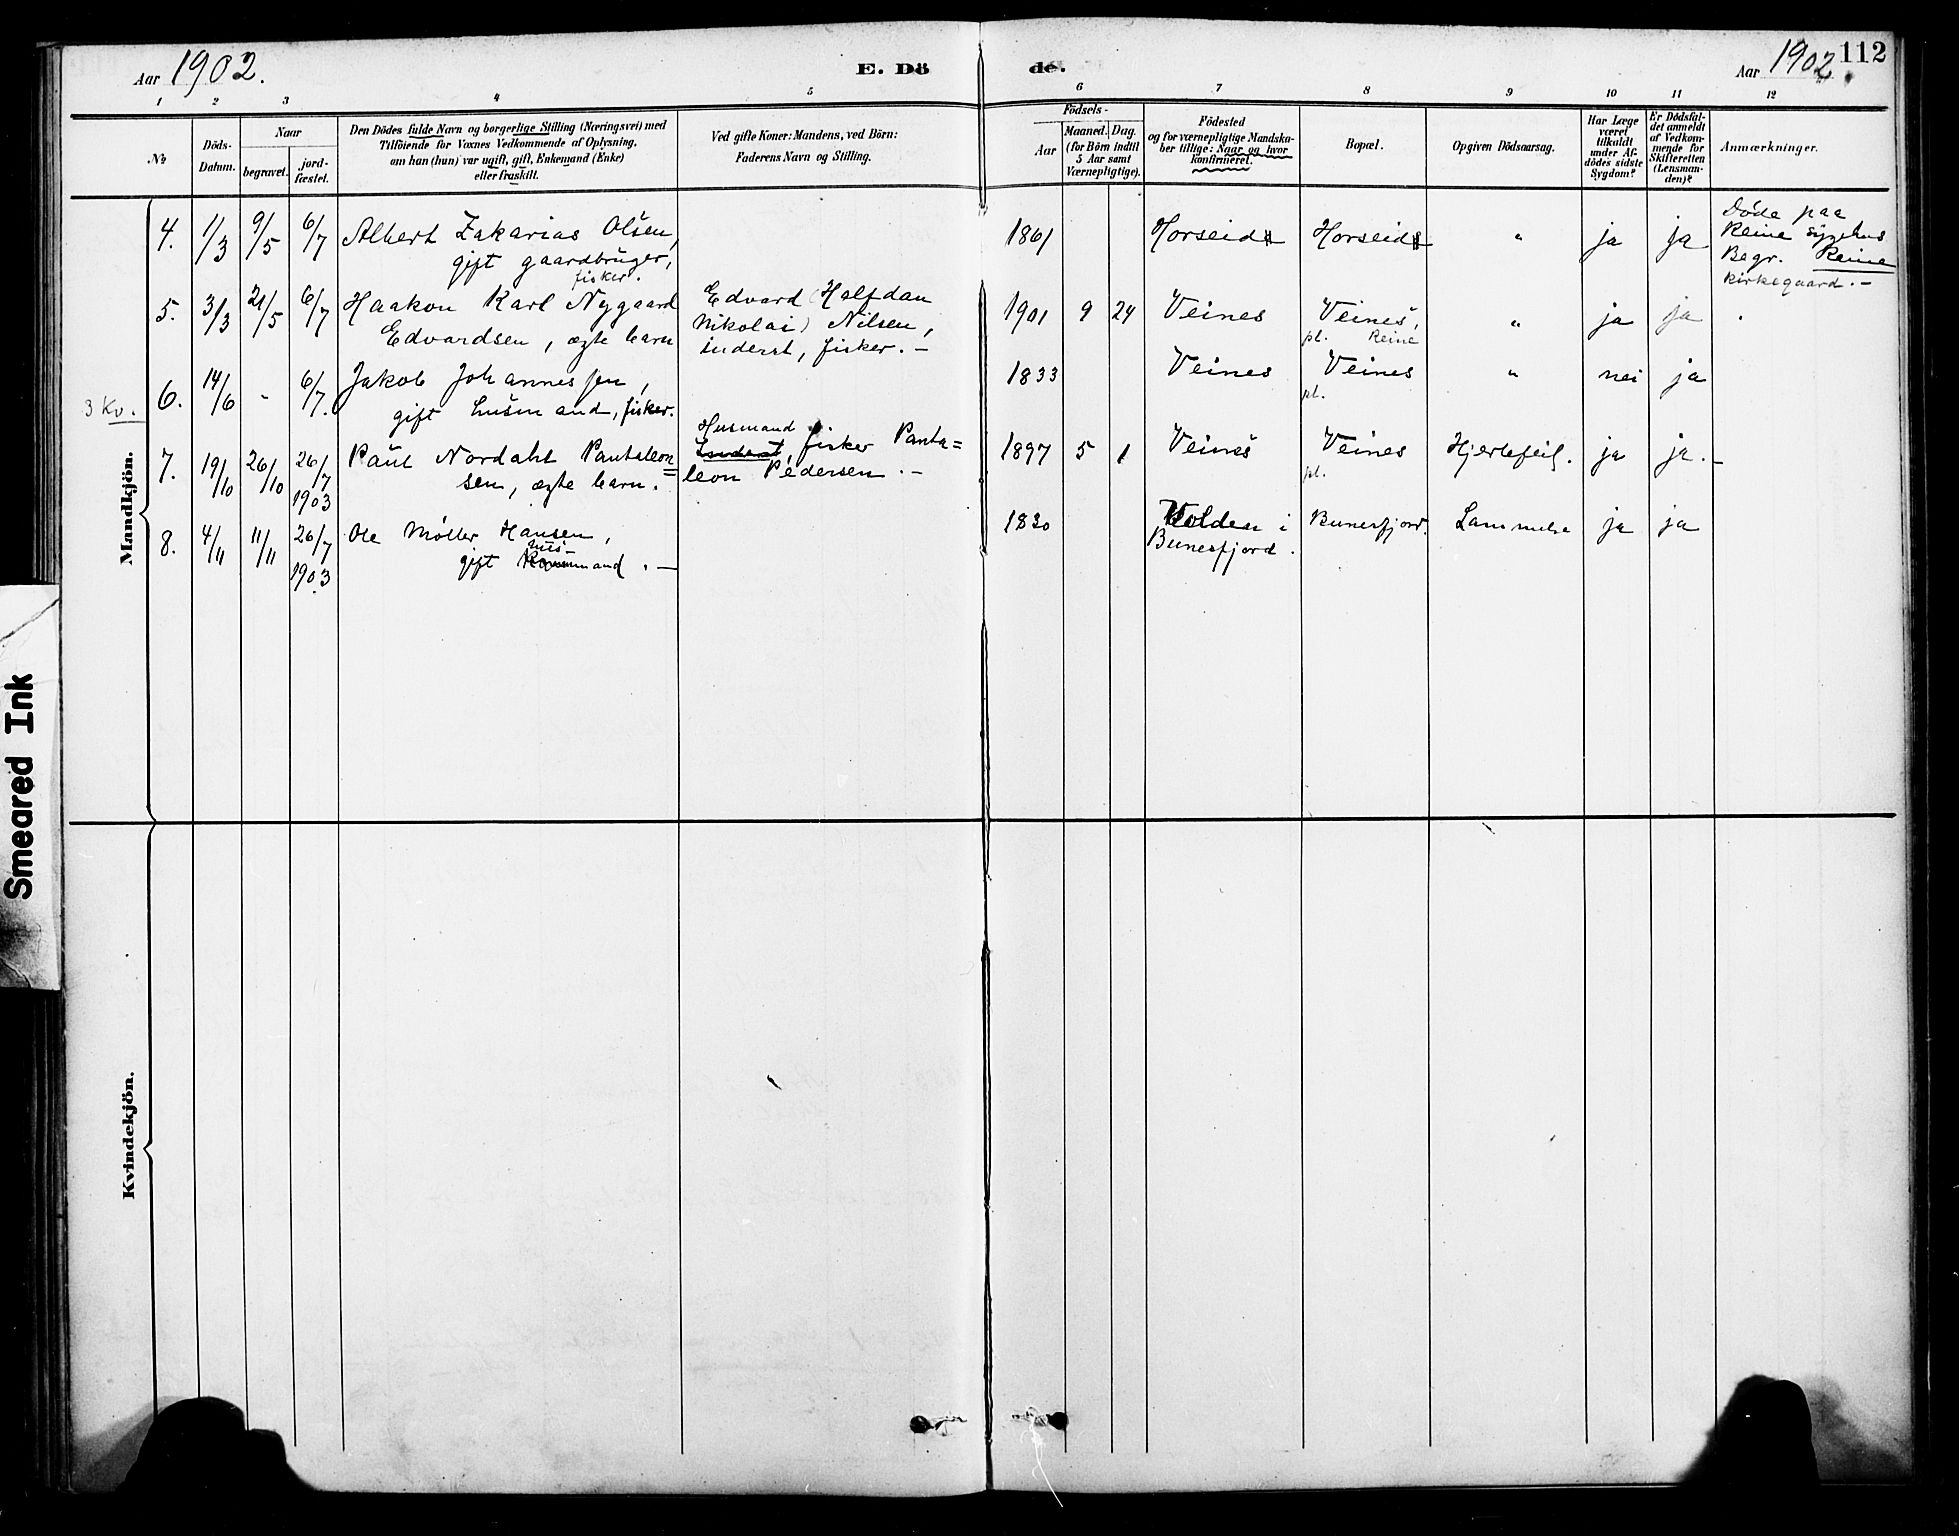 Aar 1902.
E. Dö
de.
Aar 1902
112
1 2 3 4 5 6 7 8 9 10 11 12
No
Döds-
Datum.
Naar
begravet.
jord-
fæstet.
Den Dödes fulde Navn og borgerlige Stilling (Næringsvei) med
Tilföiende for Voxnes Vedkommende af Oplysning,
om han (hun) var ugift, gift, Enkemand (Enke)
eller fraskilt.
Ved gifte Koner: Mandens, ved Börn:
Faderens Navn og Stilling.
Födsels-
Aar
Maaned. Dag.
(for Börn indtil
5 Aar samt
Værnepligtige).
Födested
og for værnepligtige Mandska-
ber tillige: Naar og hvor
konfirmeret.
Bopæl.
Opgiven Dödsaarsag.
Har Læge
været
tilkaldt
under Af-
dödes sidste
Sygdom?
Er Dödsfal-
det anmeldt
af Vedkom-
mende for
Skifteretten
(Lensman-
den)?
Anmærkninger.
Mandkjön.
4. 1/3 9/5 6/7 Albert Zakarias Olsen,
gift gaardbruger,
fisker.
1861 Horseid Horseid " ja ja
Döde paa
Reine sygehus
Begr. Reine
kirkegaard. –
5. 3/3 21/5 6/7 Haakon Karl Nygaard
Edvardsen, ægte barn
Edvard (Halfdan
Nikolai) Nilsen,
inderst, fisker. –
1901 9 24 Veines Veines,
pl. Reine
" ja ja
3 Kv.
6. 14/6 - 6/7. Jakob Johannessen,
gift husmand, fisker.
1833 Veines Veines
pl.
" nei ja
7. 19/10 26/10 26/7
1903
Paul Nordahl Pantaleon=
sen, ægte barn.
Husmand
Inderst, fisker Panta=
leon Pedersen. –
1897 5 1 Veines Veines
pl.
Hjertefeil. ja ja. –
8. 4/11 11/11 26/7
1903
Ole Møller Hansen,
hus-
gift mand. –
1830 Volden i
Bunesfjord.
Bunesfjord. Lammelse ja ja
Kvindekjön.
Smeared Ink